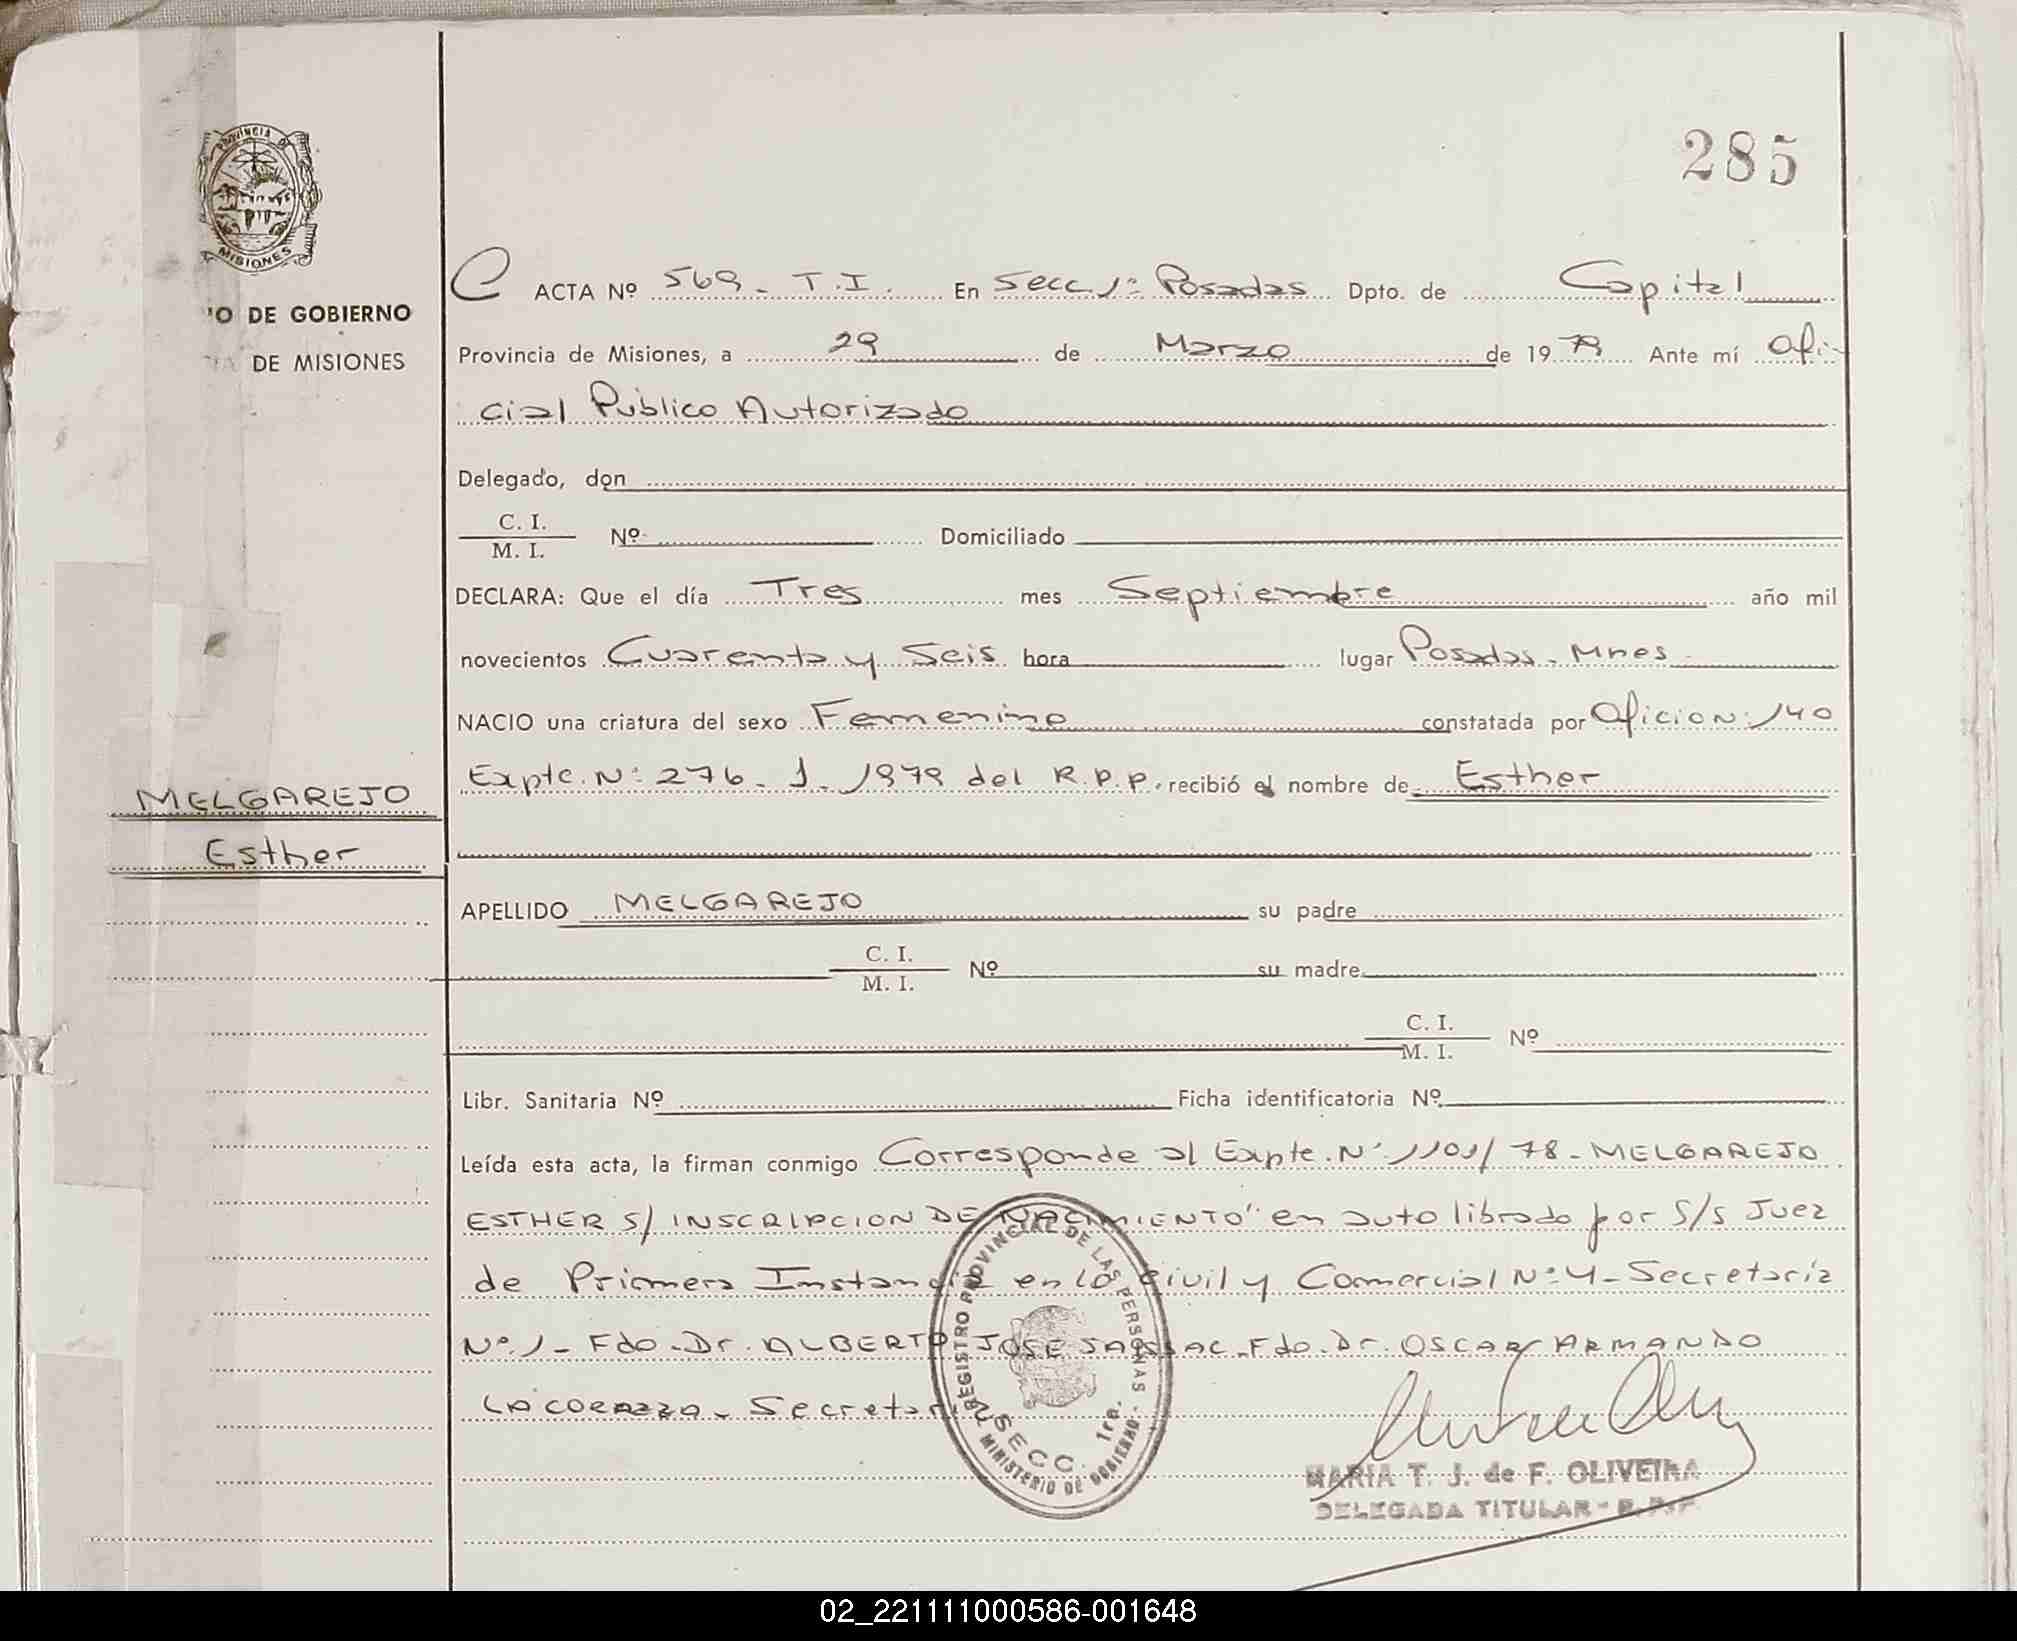 285
PROVINCIA DE
MISIONES
O DE GOBIERNO
DE MISIONES
ACTA Nº 569 - T.I. En Secc. 1ª Posadas Dpto. de Capital
Provincia de Misiones, a 29 de Marzo de 1979 Ante mí Ofi-
cial Publico Autorizado
Delegado, don
C. I.
M. I. Nº Domiciliado
DECLARA: Que el día Tres mes Septiembre año mil
novecientos Cuarenta y Seis hora lugar Posadas - Mnes
NACIO una criatura del sexo Femenino constatada por Oficio Nº 140
Expte. Nº 276 - J - 1979 del R.P.P. recibió el nombre de Esther
MELGAREJO
Esther
APELLIDO MELGAREJO su padre
C. I.
M. I. Nº su madre
C. I.
M. I. Nº
Libr. Sanitaria Nº Ficha identificatoria Nº
Leída esta acta, la firman conmigo Corresponde al Expte. Nº 1101/78 - MELGAREJO
ESTHER S/ INSCRIPCION DE NACIMIENTO" en auto librado por S/S Juez
de Primera Instancia en lo Civil y Comercial Nº 4 - Secretaría
Nº 1 - Fdo. Dr. ALBERTO JOSE Fdo. Dr. OSCAR ARMANDO
Secretar
REGISTRO PROVINCIAL DE LAS PERSONAS
SECC. 1ra.
MINISTERIO DE GOBIERNO
MARIA T. J. de F. OLIVEIRA
DELEGADA TITULAR - R.P.P.
02_221111000586-001648